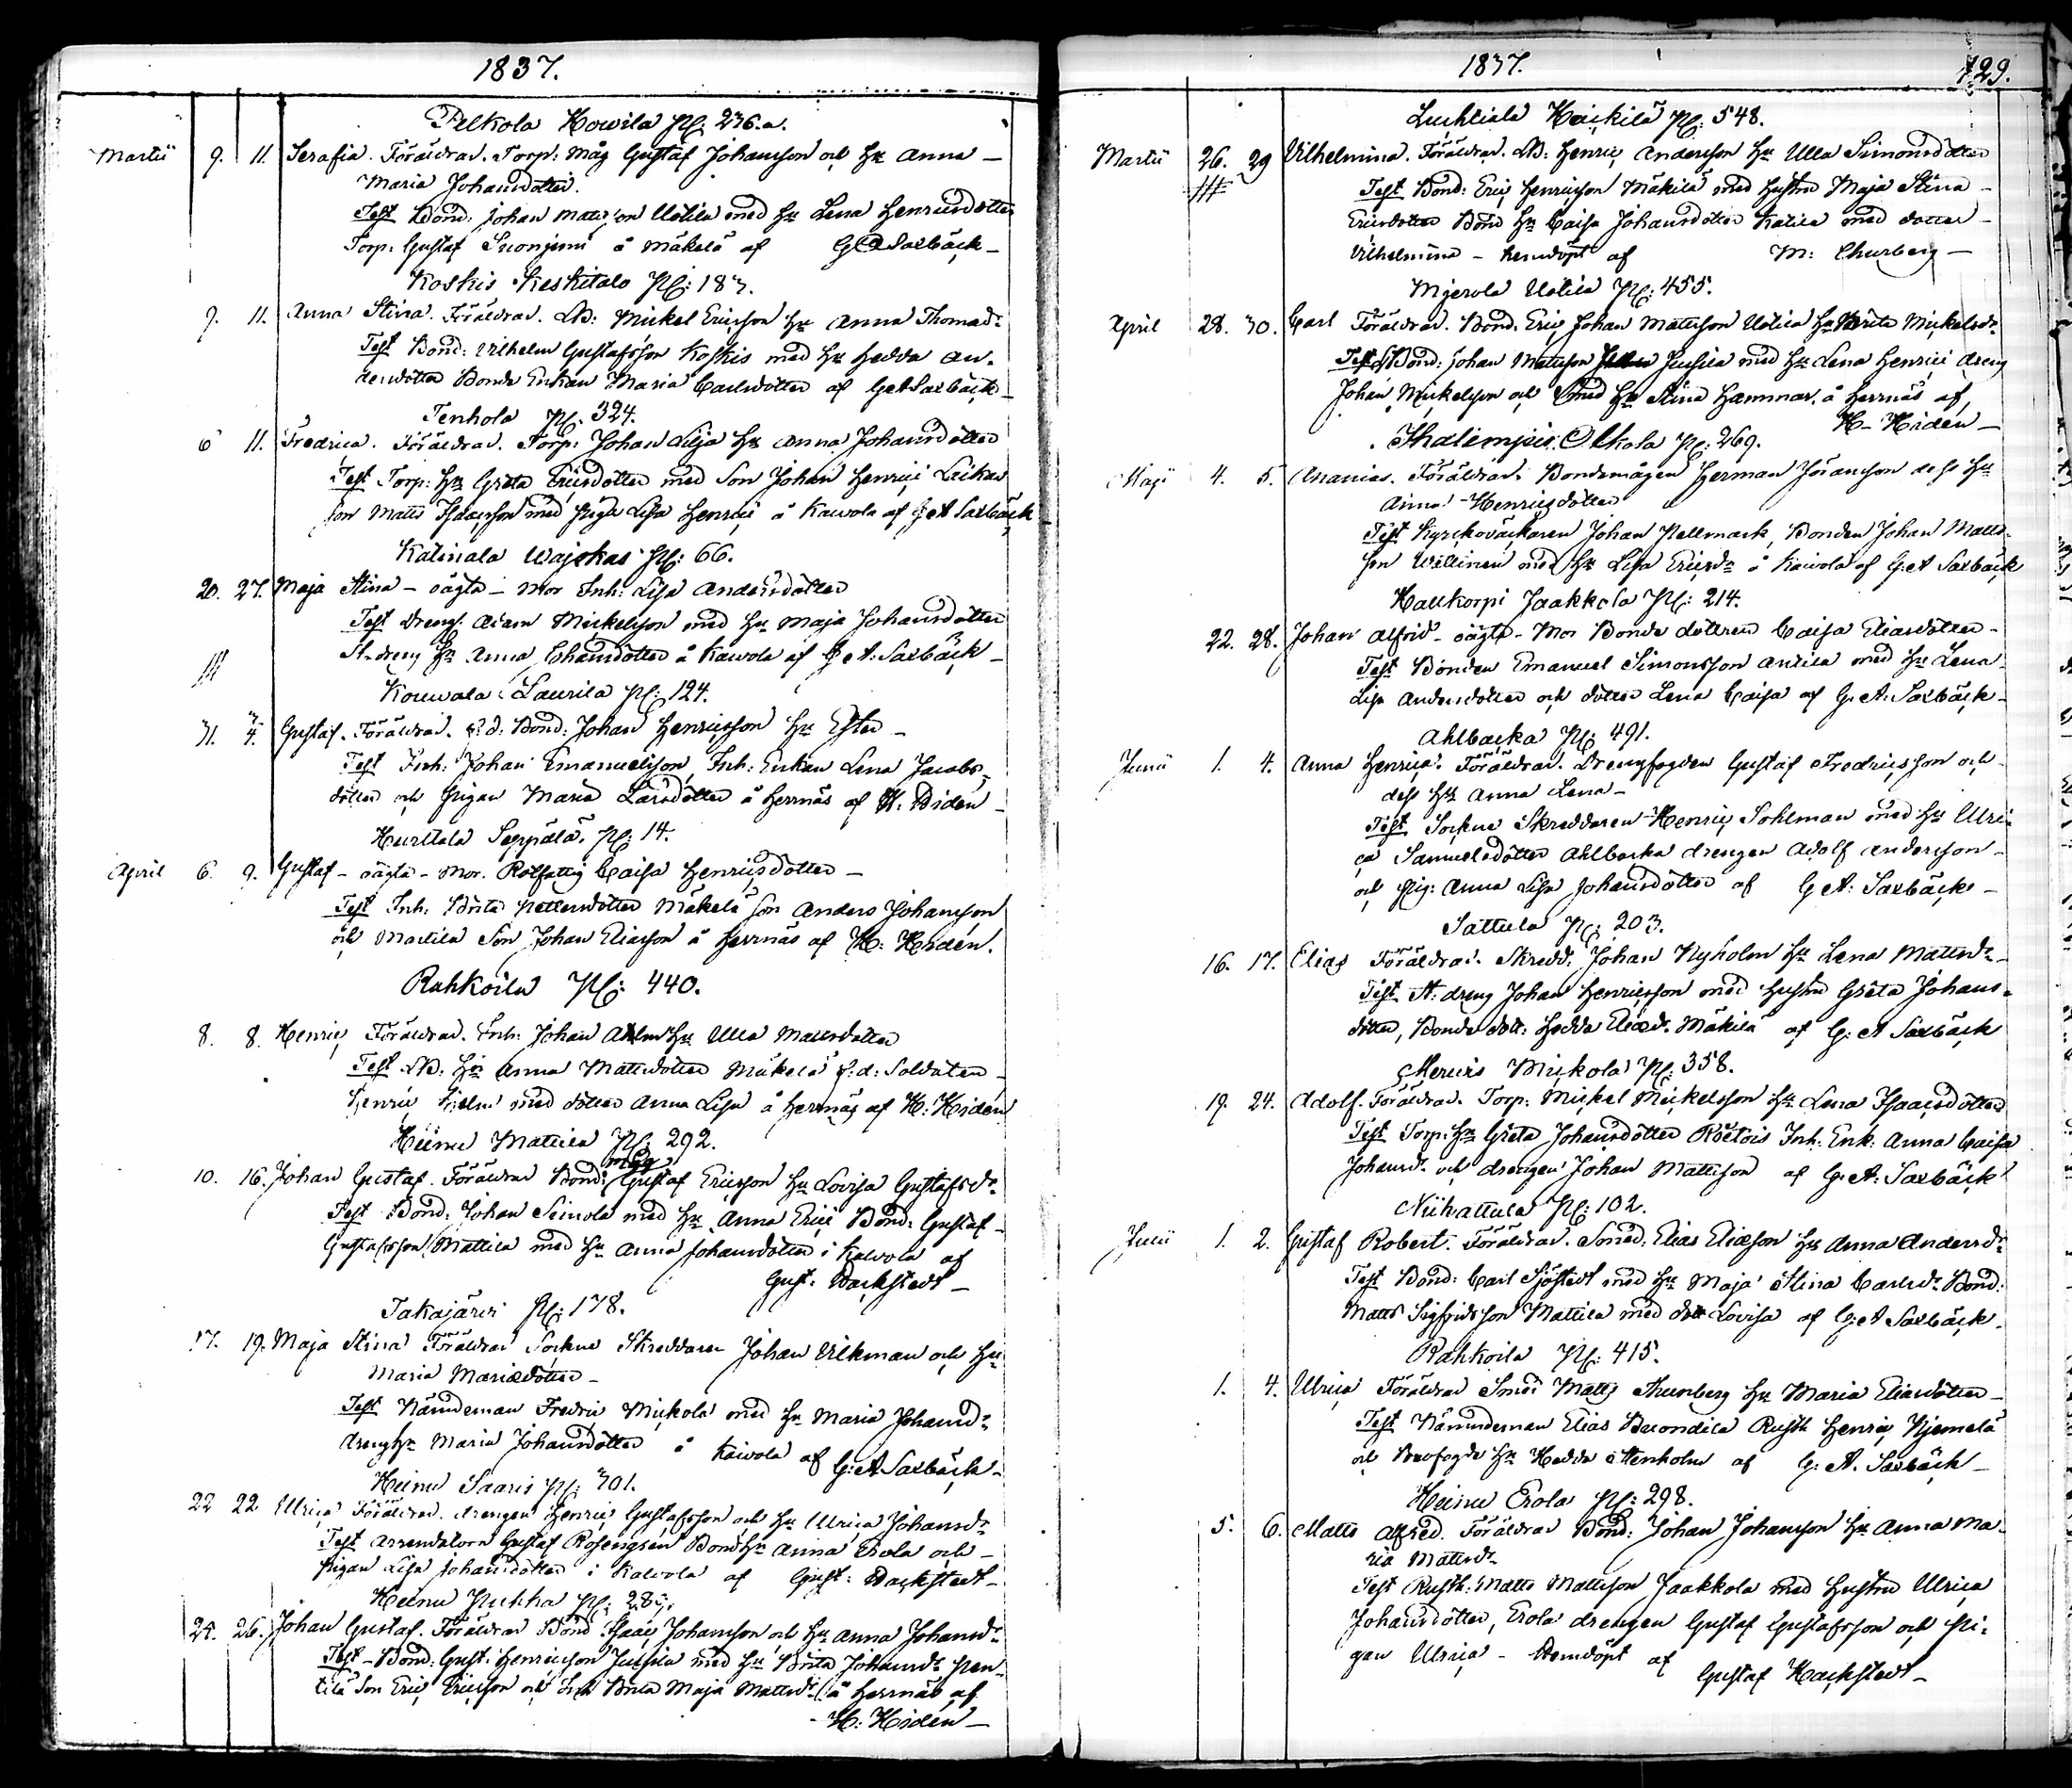 1837.
Pelkola Howila Pl: 236.a.
Martii 9. 11. Serafia. Föräldrar. Torp: måg Gustaf Johansson och Hu Anna
Maria Johansdotter.
Test Bond: Johan Matsson Uotila med Hu Lena Henricsdotter
Torp: Gustaf Suonjemi å Mäkelä af G A Saxbäck
Koskis Keskitalo Pl: 183.
9. 11. Anna Stina. Föräldrar. LB: Mickel Ericsson Hu Anna Thomasdr
Test Bond: Vilhelm Gustafsson Koskis med Hu Hedda An-
dersdotter Bonde Enkan Maria Carlsdotter af G A Saxbäck
Tenhola Pl. 324.
6 11. Fredrica. Föräldrar. Torp: Johan Lilja Hu Anna Johansdotter
Test Torp: Hu Greta Ericsdotter med Son Johan Henrici Laikas
son Matts Isaacsson med piga Lisa Henrici å Kaivola af G A Saxbäck
Katinala Wajskas Pl: 66.
20. 27. Maja Stina - oägta - Mor Inh: Lisa Andersdotter
Test Dreng: Adam Mickelsson med Hu Maja Johansdotter
St. dreng Hu Anna Johansdotter å Kaivola af G A: Saxbäck
Kouwala Laurila Pl: 124.
31. 3/4. Gustaf. Föräldrar. f.d. Bond: Johan Henricsson Hu Ester
Test Inh: Johan Emanuelsson, Inh: Enkan Lena Jacobs-
dotter och Pigan Maria Larsdotter å Herrnäs af H. Hidén
Hurttala Seppälä. Pl: 14.
April 6. 9. Gustaf - oägta - Mor. Rotfattig Caisa Henricsdotter
Test Inh: Brita Pettersdotter Mäkelä son Anders Johansson
och Mattila Son Johan Eliasson å Herrnäs af H: Hidén.
Rahkoila Pl: 440.
8. 8. Henric Föräldrar. Inh: Johan Hu Ulla Mattsdotter
Test LB: Hu Anna Mattsdotter Mäkelä f:d: Soldaten
Henric med dotter Anna Lisa å Herrnäs af H: Hidén
Heinu Mattila Pl: 292.
10. 16. Johan Gustaf. Föräldrar Bond: måg Gustaf Ericsson Hu Lovisa Gustafsdr
Test Bond: Johan Simola med Hu Anna Erici Bond: Gustaf
Gustafsson Mattila med Hu Anna Johansdotter i Kalvola af
Gust: Hackstedt
Takajärvi Pl: 178.
17. 19. Maja Stina Föräldrar Sockne Skreddaren Johan Vikman och Hu
Maria Mariædotter
Test Nämndeman Fredric Mickola med Hu Maria Johansdr
Dreng Hu Maria Johansdotter å Kaivola af G: A Saxbäck
Heinu Saaris Pl: 301.
22 22 Ulrica Föräldrar. drengen Henric Gustafsson och Hu Ulrica Johansdr
Test Arrendatorn Gustaf Rosengrén Bond Hu Anna Erola och
Pigan Lisa Johansdotter i Kalvola af Gust: Hackstedt
Heinu Puhha Pl: 285.
24. 26. Johan Gustaf. Föräldrar Bond Isaac Johansson och Hu Anna Johansdr
Test - Bond: Gust: Henricsson Jussila med Hu Brita Johansdr Pen-
tilä Son Eric Ericsson och Inh Brita Maja Mattsdr å Herrnäs af
H: Hidén
1837. 129.
Luhtiala Heickilä Pl: 548.
Martii 26. 29 Vilhelmina. Föräldrar. LB: Henric Andersson Hu Ulla Simonsdotter
Test Bond: Eric Henricsson Mäkilä med Hustru Maja Stina
Ericsdotter Bond Hu Caisa Johansdotter Katila med dotter
Vilhelmina - hemdöpt af M: Churberg
Mjerola Uotila Pl: 455.
April 28. 30. Carl Föräldrar. Bond: Eric Johan Mattsson Uotila Hu Brita Mickelsdr
Test Bond: Johan Mattsson Jussila med Hu Lena Henrici dreng
Johan Mickelsson och Smed Hu Stina Hammar. å Herrnäs af
H. Hidén
Ihalempis Ollola Pl: 269.
Maji 4. 5. Ananias. Föräldrar. Bondemågen Herman Jöransson dess Hu
Anna Henricsdotter
Test Kyrckoväcktaren Johan Hellmark, Bonden Johan Matts-
son Willinen med Hu Lisa Ericsdr å Kaivola af G: A Saxbäck
Hallkorpi Jaakkola Pl: 214.
22. 28. Johan Alfrid - oägta - Mor Bonde dottren Caisa Eliasdotter
Test Bonden Emanuel Simonsson Antila med Hu Lena
Lisa Andersdotter och dotter Lena Caisa af G: A: Saxbäck
Ahlbacka Pl: 491.
Junii 1. 4. Anna Henrica. Föräldrar. Drengfogden Gustaf Fredricsson och
dess Hu Anna Lena
Test Sockne Skreddaren Henric Sohlman med Hu Ulri-
ca Samuelsdotter Ahlbacka drengen Adolf Andersson
och Pig: Anna Lisa Johansdotter af G A: Saxbäck
Sattula Pl: 203.
16. 17. Elias Föräldrar. Skredd: Johan Nyholm Hu Lena Mattsdr
Test St: dreng Johan Henricsson med Hustru Greta Johans-
dotter, Bonde dott: Hedda Eliædr Mäkilä af G: A Saxbäck
Merwis Mickola Pl: 358.
19. 24. Adolf. Föräldrar. Torp: Mickel Mickelsson Hu Lena Isaacsdotter
Test Torp: Hu Greta Johansdotter Inh: Enk: Anna Caisa
Johansdr och drengen Johan Mattsson af G: A: Saxbäck
Niihattula Pl: 102.
Julii 1. 2. Gustaf Robert. Föräldrar. Smed: Elias Eliæson Hu Anna Andersdr
Test Bond: Carl Sjöstedt med Hu Maja Stina Carlsdr Bond:
Matts Sigfridsson Mattila med dott Lovisa af G: A Saxbäck.
Rahkoila Pl: 415.
1. 4. Ulrica Föräldrar Smed Matts Thunberg Hu Maria Eliasdotter
Test Nämndeman Elias Rusth Henric Njemelä
och Brofogde Hu Hedda Stenholm af G: A. Saxbäck
Heinu Erola Pl: 298.
5. 6. Matts Alfred. Föräldrar Bond: Johan Johansson Hu Anna Ma-
ria Mattsdr
Test Rusth: Matts Mattsson Jaakkola med Hustru Ulrica
Johansdotter, Erola drengen Gustaf Gustafsson och Pi-
gan Ulrica - Hemdöpt af
Gustaf Hackstedt